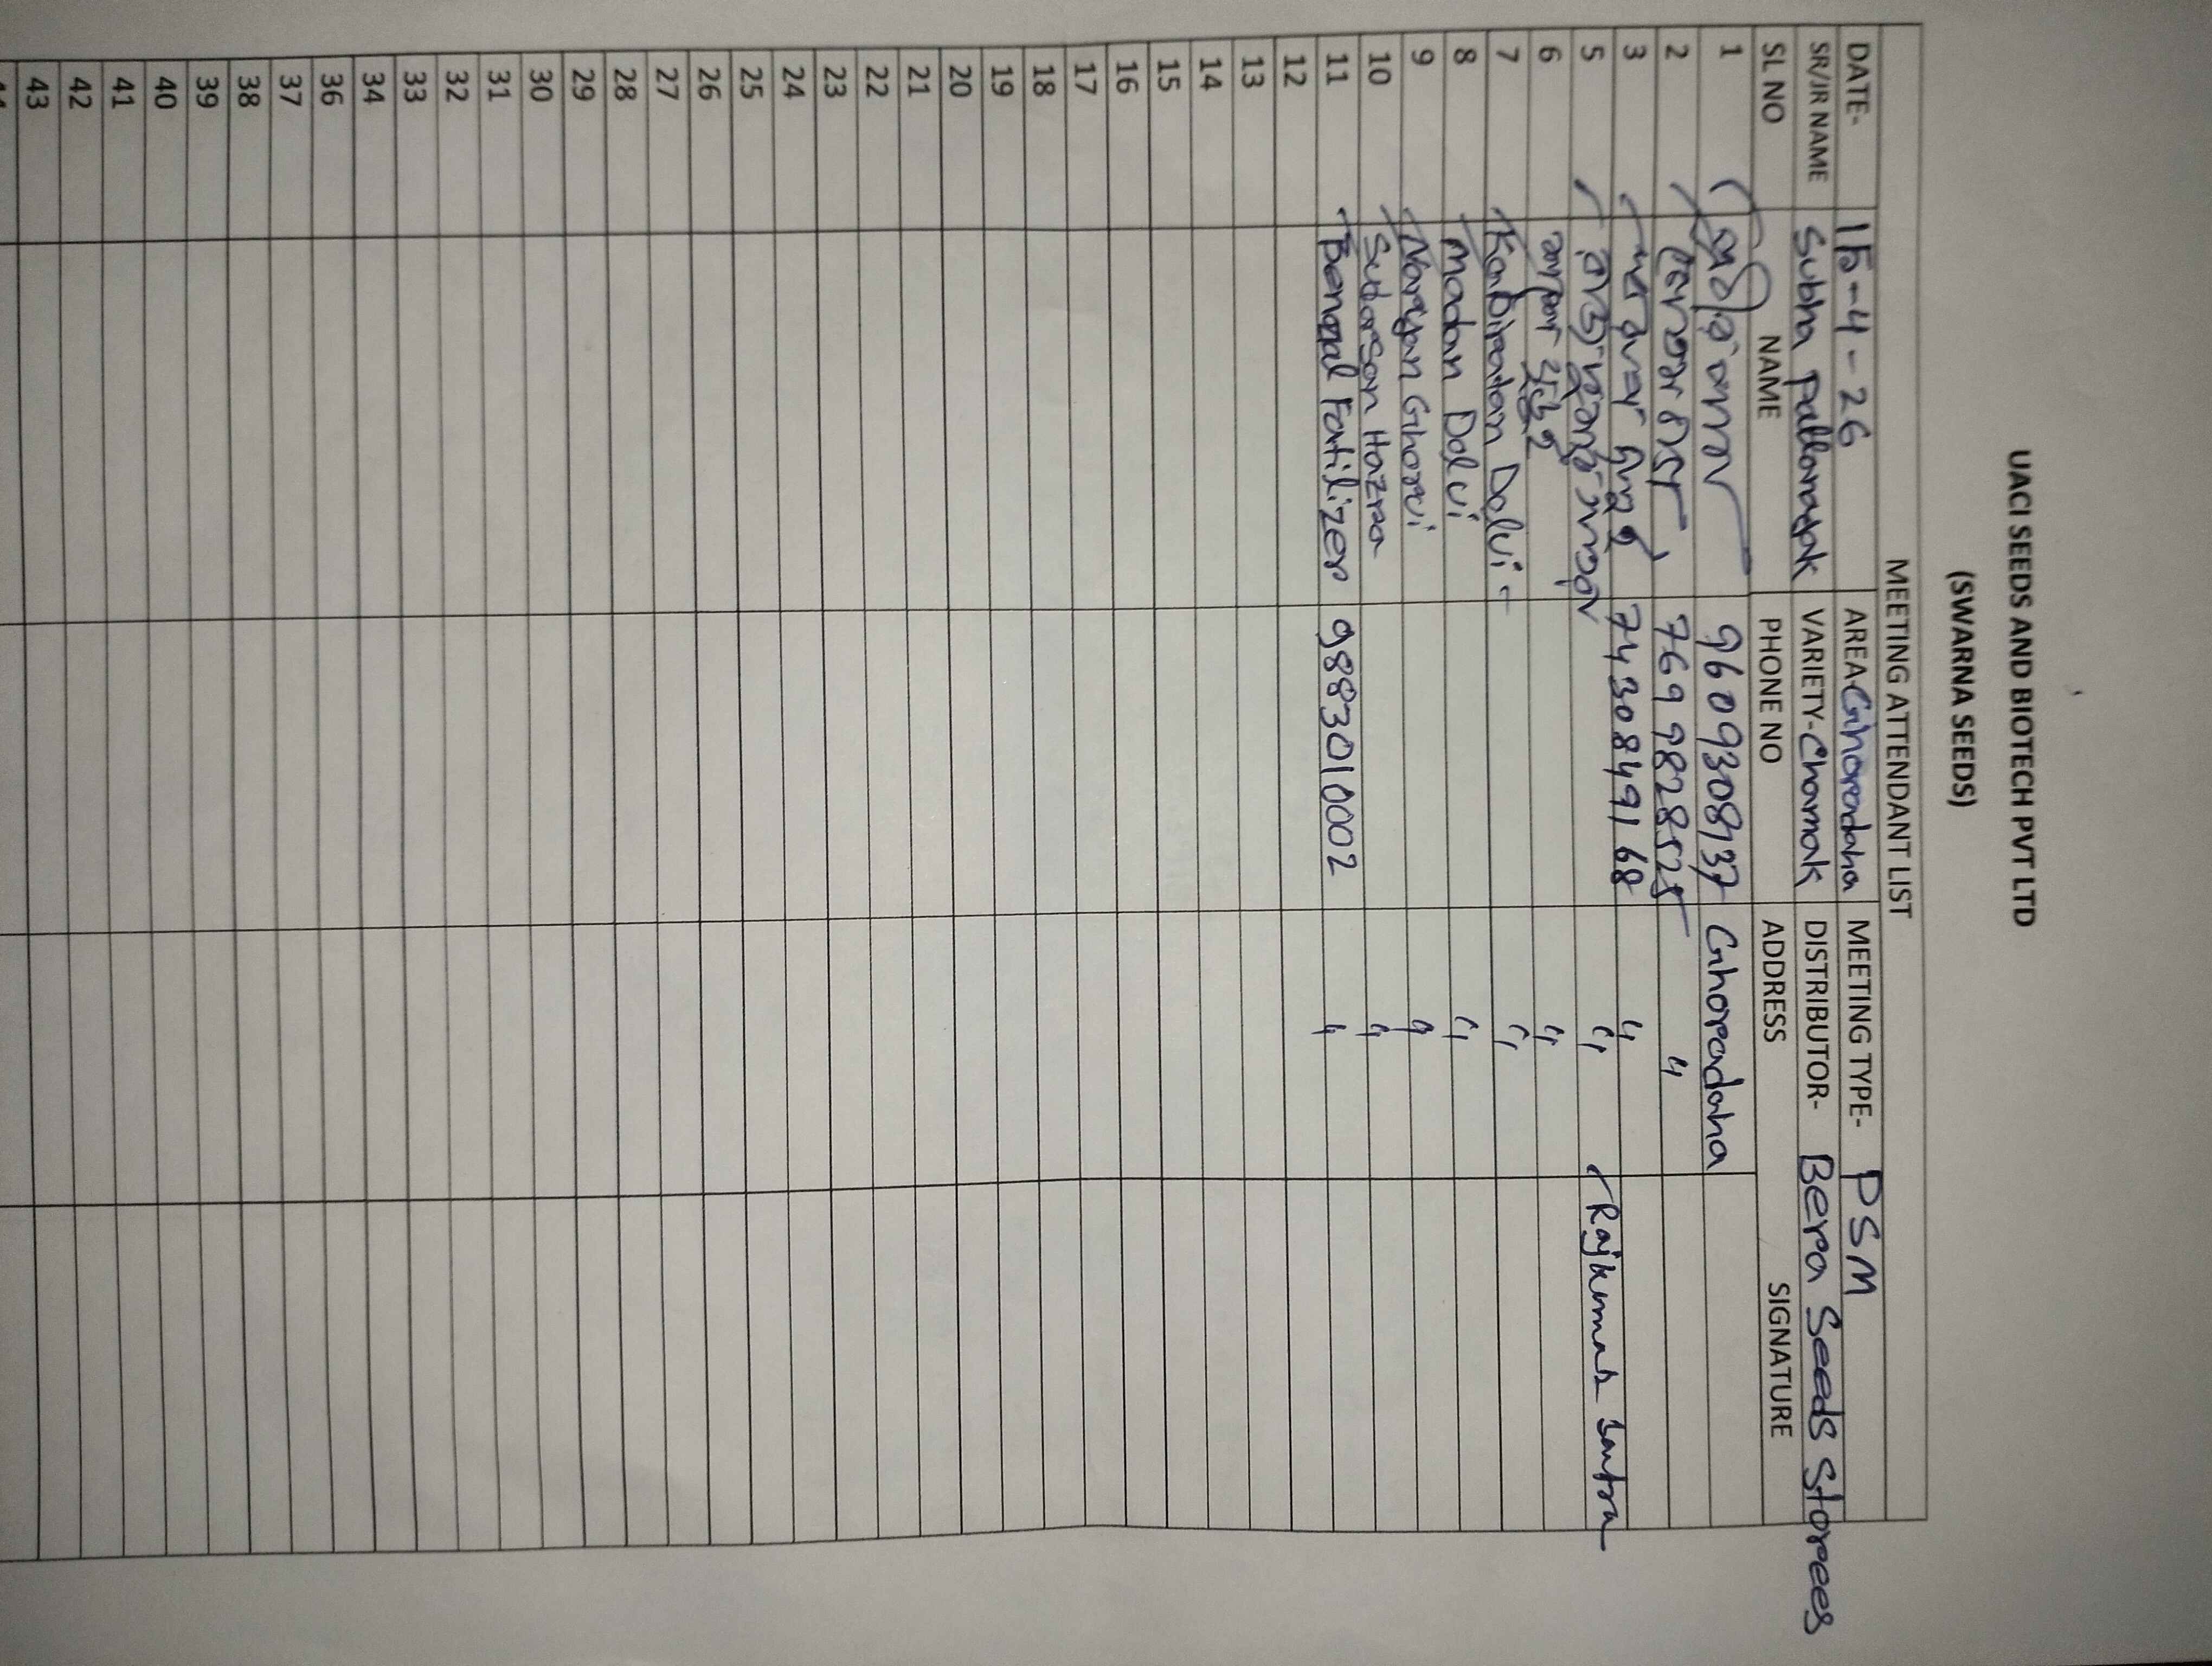 UACI SEEDS AND BIOTECH PVT LTD
(SWARNA SEEDS)
MEETING ATTENDANT LIST
DATE- 15-4-26 AREA-Ghoradaha MEETING TYPE- PSM
SR/JR NAME Subha Pattanayak VARIETY-Chamak DISTRIBUTOR- Bera Seeds Storees
SL NO NAME PHONE NO ADDRESS SIGNATURE
1 9609308137 Ghoradaha
2 7699828525 "
3 7430849168 "
5 " Rajkumar Santra
6 "
7 Dalui "
8 Madan Dalui "
9 Narayan Ghorui "
10 Sudarsan Hazra "
11 Bengal Fartilizer 9883010002 "
12
13
14
15
16
17
18
19
20
21
22
23
24
25
26
27
28
29
30
31
32
33
34
36
37
38
39
40
41
42
43